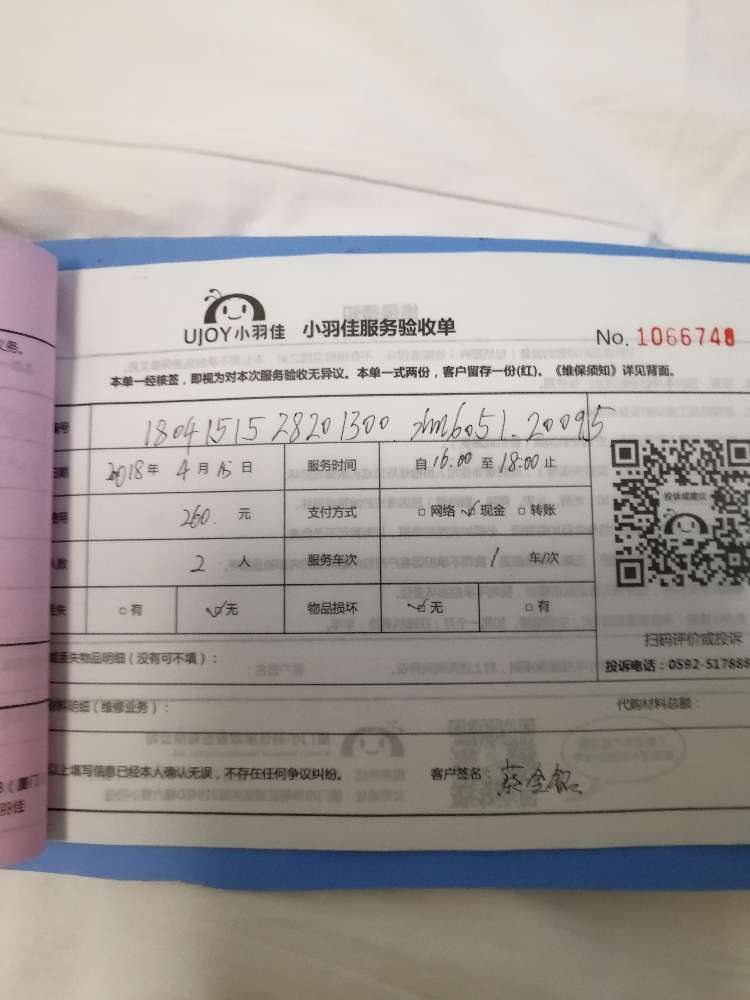 UJOY小羽佳 小羽佳服务验收单
No. 1066748
本单一经核签，即视为对本次服务验收无异议。本单一式两份，客户留存一份(红)。《维保须知》详见背面。
编号 18041515 28201300.
日期 2018年 4月15日 服务时间 自16:00至18:00止
投诉或建议
费用 260.元 支付方式 □网络 ☑现金 □转账
人数 2人 服务车次 1车/次
丢失 □有 ☑无 物品损坏 ☑无 □有
扫码评价或投诉
丢失物品明细（没有可不填）：
投诉电话：0592-517888
材料明细（维修业务）：
代购材料总额：
以上填写信息已经本人确认无误，不存在任何争议纠纷。 客户签名：